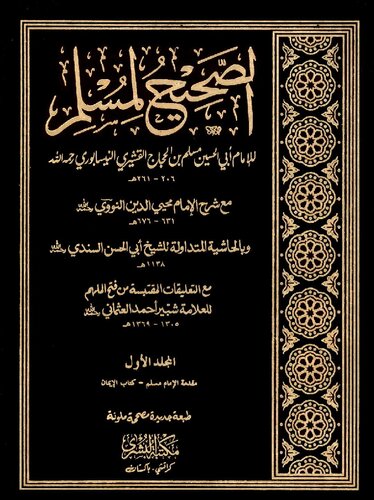 الصحيح لمسلم
للإمام أبي الحسين مسلم بن الحجاج القشيري النيسابوري رحمه الله
٢٠٦ - ٢٦١هـ
مع شرح الإمام محيي الدين النووي
٦٣١ - ٦٧٦هـ
وبالحاشية المتداولة للشيخ أبي الحسن السندي
١١٣٨هـ
مع التعليقات المقتبسة من فتح الملهم
للعلامة شبير أحمد العثماني
١٣٠٥ - ١٣٦٩هـ
المجلد الأول
مقدمة الإمام مسلم - كتاب الإيمان
طبعة جديدة مصححة ملونة
مكتبة البشرى
كراتشي - باكستان